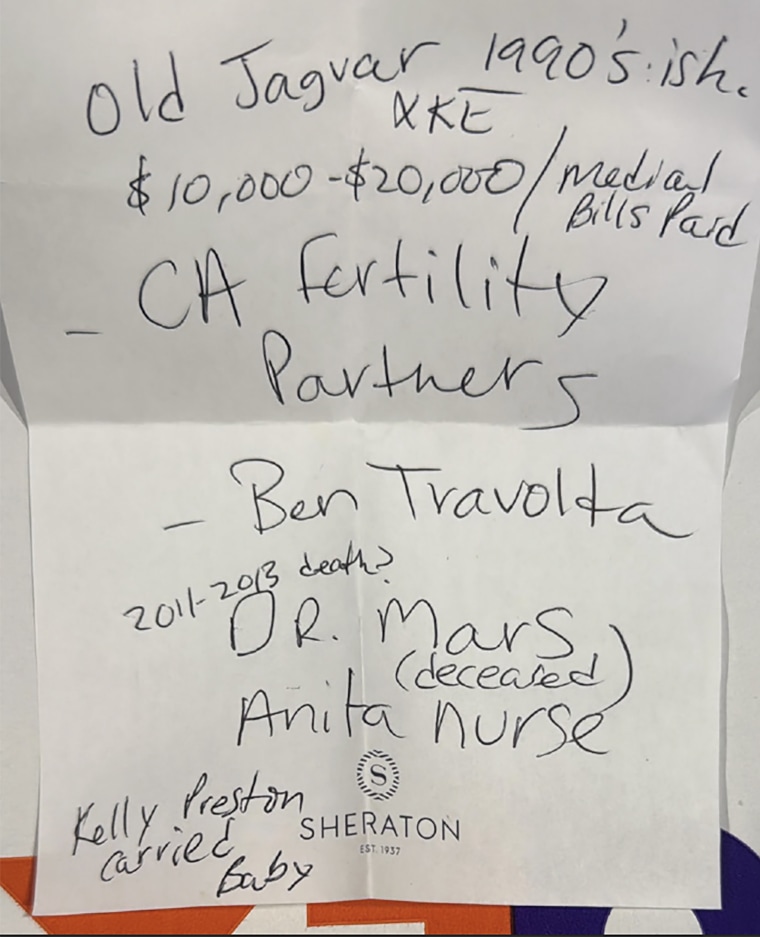 Old Jaguar 1990's ish.
XKE
$10,000-$20,000/Medical
Bills Paid
- CA Fertility
Partners
- Ben Travolta
2011-2013 death?
DR. Mars
(deceased)
Anita nurse
S
Kelly Preston
carried
Baby
SHERATON
EST. 1937